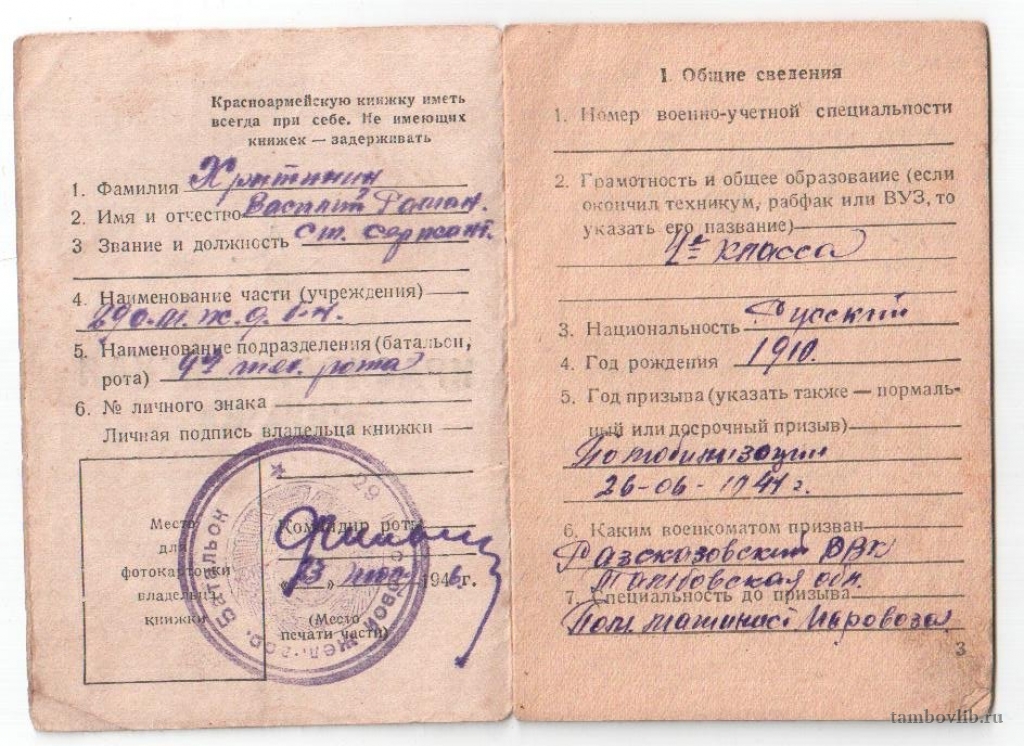 Красноармейскую книжку иметь
всегда при себе. Не имеющих
книжек — задерживать
1. Фамилия
2. Имя и отчество Василий Роман.
3 Звание и должность ст. сержант.
4. Наименование части (учреждения)
29 о.ж.д. б-н.
5. Наименование подразделения (батальон,
рота) рота
6. № личного знака
Личная подпись владельца книжки
Место
для
фотокарточки
владельца
книжки
Командир роты
„13" мая 1946 г.
(Место
печати части)
Батальон 29
I. Общие сведения
1. Номер военно-учетной специальности
2. Грамотность и общее образование (если
окончил техникум, рабфак или ВУЗ, то
указать его название)
4е класса
3. Национальность Русский
4. Год рождения 1910.
5. Год призыва (указать также — нормаль-
ный или досрочный призыв)
По мобилизации
26-06-1941 г.
6. Каким военкоматом призван
Разсказовский РВК
Тамбовская обл.
7. Специальность до призыва
Пом. машинист паровоза
3
tambovlib.ru